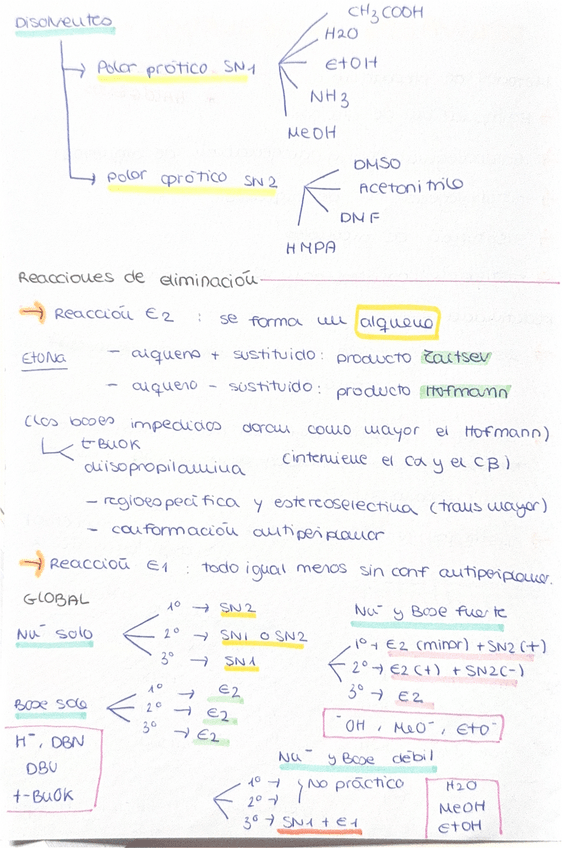 Disolventes
CH3COOH
H2O
Polar prótico SN1
EtOH
NH3
MeOH
Polar aprótico SN2
DMSO
Acetonitrilo
DMF
HMPA
Reacciones de eliminación
→ Reacción E2 : se forma un alqueno
EtONa
- alqueno + sustituido: producto Zaitsev
- alqueno - sustituido: producto Hofmann
(los bases impedidas daran como mayor el Hofmann)
t-BuOK
diisopropilamina
(interviene el Cα y el Cβ)
- regioespecífica y estereoselectiva (trans mayor)
- conformación antiperiplanar
→ Reacción E1 : todo igual menos sin conf antiperiplanar.
GLOBAL
Nu⁻ solo
1º → SN2
2º → SN1 o SN2
3º → SN1
Nu⁻ y Base fuerte
1º → E2 (minor) + SN2(+)
2º → E2(+) + SN2(-)
3º → E2
⁻OH, MeO⁻, EtO⁻
Base sola
1º → E2
2º → E2
3º → E2
H⁻, DBN
DBU
t-BuOK
Nu⁻ y Base débil
1º →
2º →
No práctico
3º → SN1 + E1
H2O
MeOH
EtOH